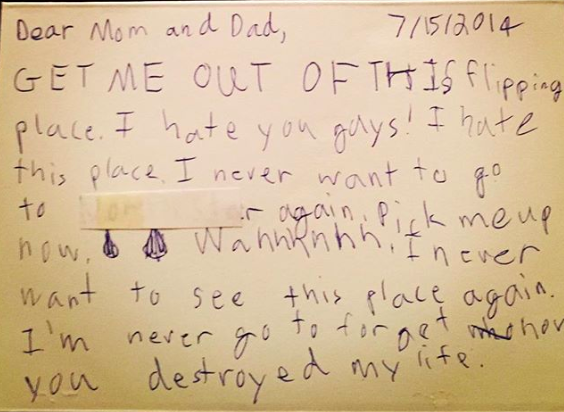 Dear Mom and Dad, 7/15/2014
GET ME OUT OF THIS flipping
place. I hate you guys! I hate
this place. I never want to go
to r again. Pick me up
now. Wahhhnhh. I never
want to see this place again.
I'm never go to forget how
you destroyed my life.